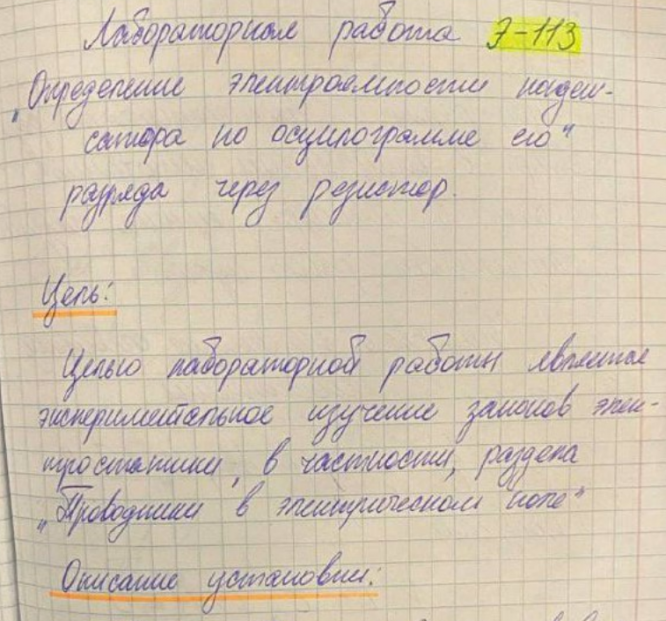 Лабораторная работа Э-113
„Определение электроемкости конден-
сатора по осцилограмме его"
разряда через резистор.
Цель:
Целью лабораторной работы является
экспериментальное изучение законов элек-
тростатики, в частности, раздела
„Проводники в электрическом поле"
Описание установки: